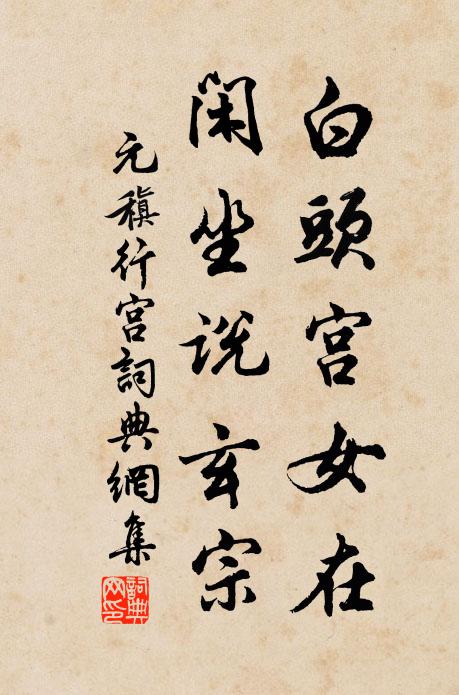 白頭宮女在
閑坐説玄宗
元稹行宮詞典網集
詞典網印